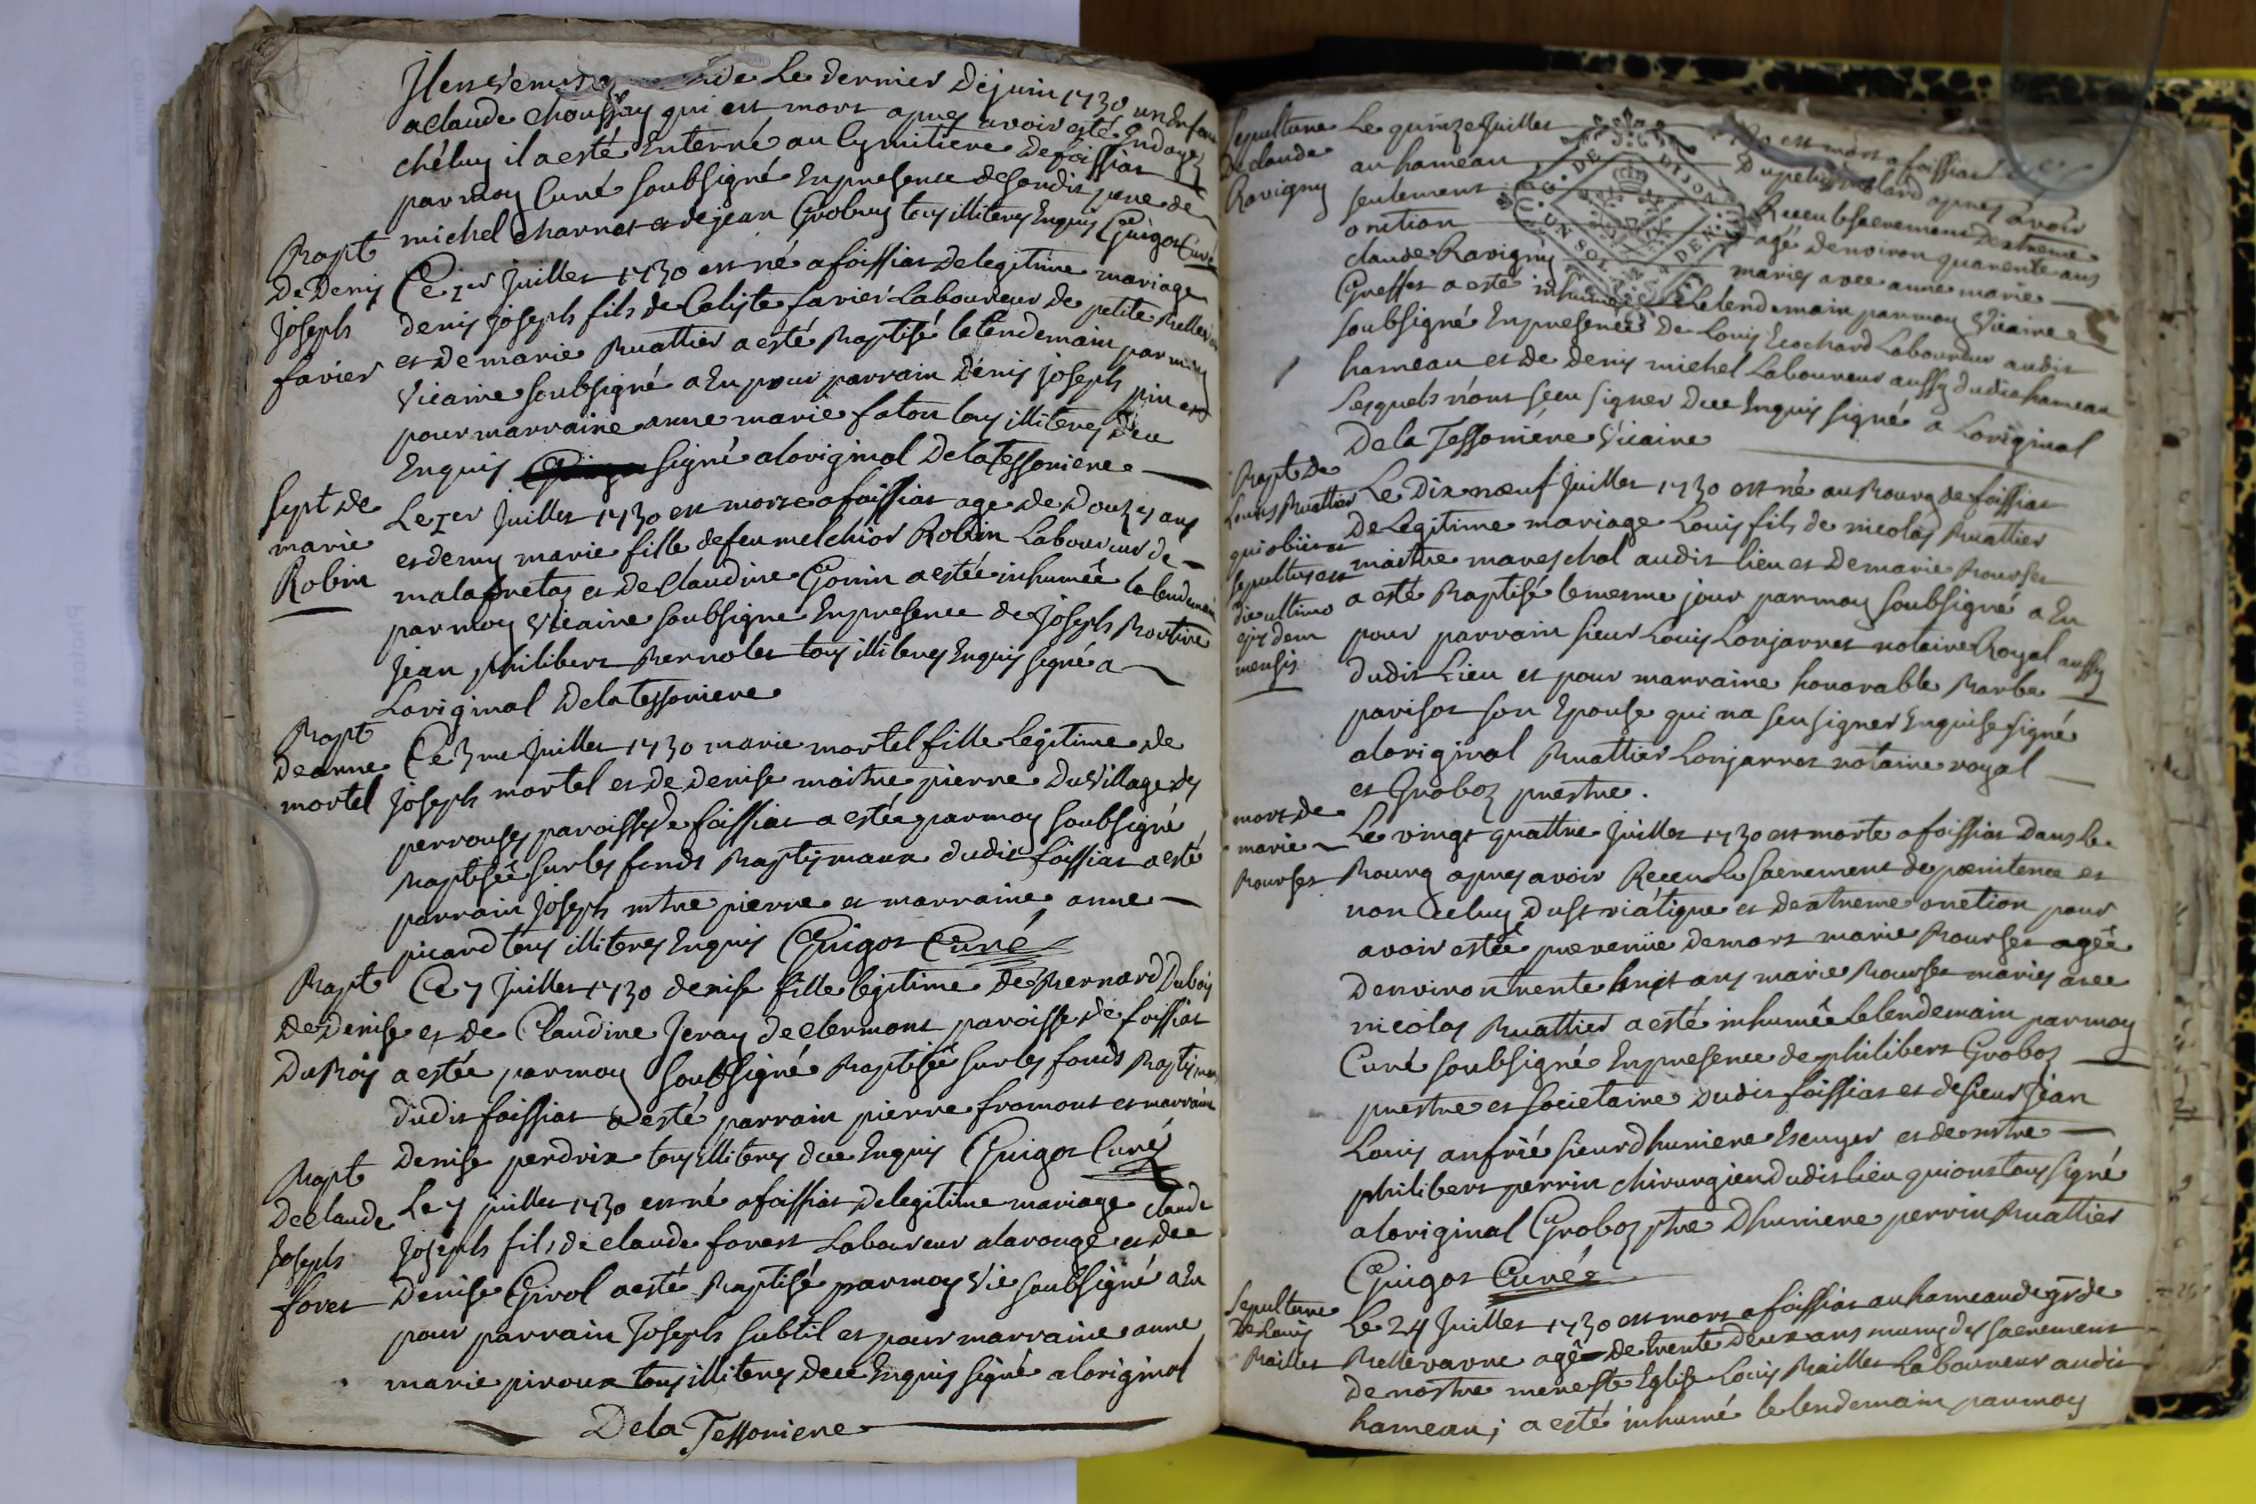 Il est venu de le dernier de juin 1730 un Enfan
a claude choussuy qui est mort apres avoir esté Endoyé
chéluy il a esté Enterré au Cymitiere de foissiat
par moy Curé soubsigné En presence de sondit pere de
michel charnet et de jean Grobuy tous illiteres Enquis Guigot Curé
Bapt
De Denis
joseph
favier
Ce 1er Juillet 1730 est né a foissiat de legitime mariage
denis joseph fils de Caliste favier Laboureur de petite Belleva
et de marie Buattier a esté Baptisé le lendemain par moy
Vicaire soubsigné a Eu pour parrain Denis joseph pin et
pour marraine anne marie faton tous illiteres Dee
Enquis signé a loriginal De la Tessoniere
Sept de
marie
Robin
Le 1er Juillet 1730 est morte a foissiat age de Douze ans
et demy marie fille de feu melchior Robin Laboureur de
malafretas et de Claudine Gonin a estée inhumée le lendemain
par moy Vicaire soubsigne En presence de joseph
Jean philibert Bernolet tous illiteres Enquis signé a
Loriginal De la Tessoniere
Bapt
De anne
mortel
Ce 3me Juillet 1730 marie mortel fille Legitime de
joseph mortel et de Denise maitre pierre Du Village des
perrouses paroisse de foissiat a estée par moy soubsigné
Baptisée sur les fonds Baptismaux dudit foissiat a esté
parrain joseph mtre pierre et marraine anne
picard tous illiteres Enquis Guigot Curé
Bapt
De Denise
DuBois
Ce 7 Juillet 1730 denise fille legitime de Bernard Dubois
et de Claudine Jeray de clermont paroisse de foissiat
a estée par moy soubsigné Baptisée sur les fonds Baptismaux
dudit foissiat a esté parrain pierre fromont et marraine
Denise perdrix tous Illiteres dee Enquis Guigot Curé
Bapt
De claude
Joseph
foret
Le 7 juillet 1730 est né a foissiat de legitime mariage claude
Joseph fils de claude forest Laboureur a la rouge et de
Denise Girol a esté Baptisé par moy Vic soubsigné a Eu
pour parrain Joseph subtil et pour marraine anne
marie piroux tous illiteres dee Enquis signé a loriginal
De la Tessoniere
Sepulture
De claude
Ravigny
Le quinze Juillet est mort a foissiat
au hameau Du petit apres avoir
seulement Receu le sacrement Dextreme
onction agé Denviron quarente ans
claude Ravigny maries avec anne marie
Greffet a esté inhumé Le lendemain par moy Vicaire
soubsigné En presence De Louis Ecochard Laboureur audit
hameau et De denis michel Laboureur aussy dudit hameau
Lesquels n'ont sceu signer Dee Enquis signé a Loriginal
De la Tessoniere Vicaire
Bapt De
Louis Buattier
qui obiit et
sepultus est
die ultimo
ejus dem
mensis
Le Dix noeuf Juillet 1730 est né au Bourg de foissiat
De Legitime mariage Louis fils de nicolas Buattier
maitre mareschal audit lieu et De marie Bourset
a esté Baptisé le mesme jour par moy soubsigné a Eu
pour parrain sieur Louis Lonjarret notaire Royal aussy
dudit Lieu et pour marraine honorable Barbe
parisot son Epouse qui na sceu signer Enquise signé
a loriginal Buattier Lonjarret notaire royal
et Groboz prestre.
mort de
marie
Bourset
Le vingt quattre Juillet 1730 est morte a foissiat Dans Le
Bourg apres avoir Receu Le sacrement de poenitence et
non celuy Du St viatique et Dextreme onction pour
avoir estée prevenüe de mort marie Bourset agée
Denviron trente huit ans marie Bourset maries avec
nicolas Buattier a esté inhumée le lendemain par moy
Curé soubsigné En presence de philibert Groboz
prestre et societaire dudit foissiat et de sieur Jean
Louis anfrié sieur dhuniere Escuyer et de mtre
philibert perrin chirurgien dudit lieu qui ont tous signé
a loriginal Groboz ptre Dhuniere perrin Buattier
Guigot Curé
Sepulture
De Louis
Baillet
Le 24 Juillet 1730 est mort a foissiat au hameau de grde
Bellevavre agé de trente Deux ans muny des sacrement
de nostre mere ste Eglise Louis Baillet Laboureur audit
hameau; a esté inhumé le lendemain par moy